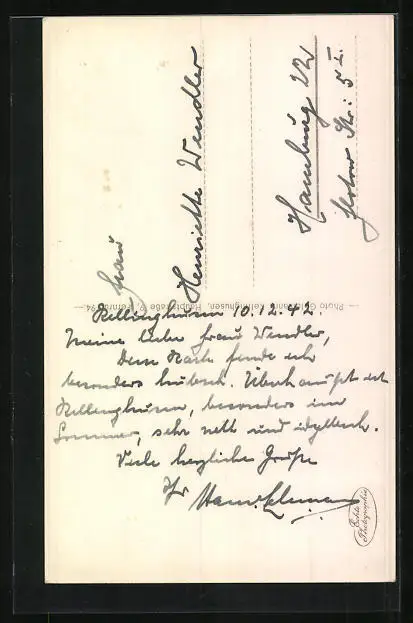 Frau
Henriette Wendler
Hamburg 22
Str: 5 I.
Photo Kellinghusen, Hauptstraße 9, Fernruf 94
Kellinghusen 10.12.42.
Meine liebe Frau Wendler,
Dem Nach finde ich
besonders hübsch. Überhaupt ist
Kellinghusen, besonders im
Sommer, sehr nett und idyllisch.
Viele herzliche Grüße
Ihr
Echte
Photographie